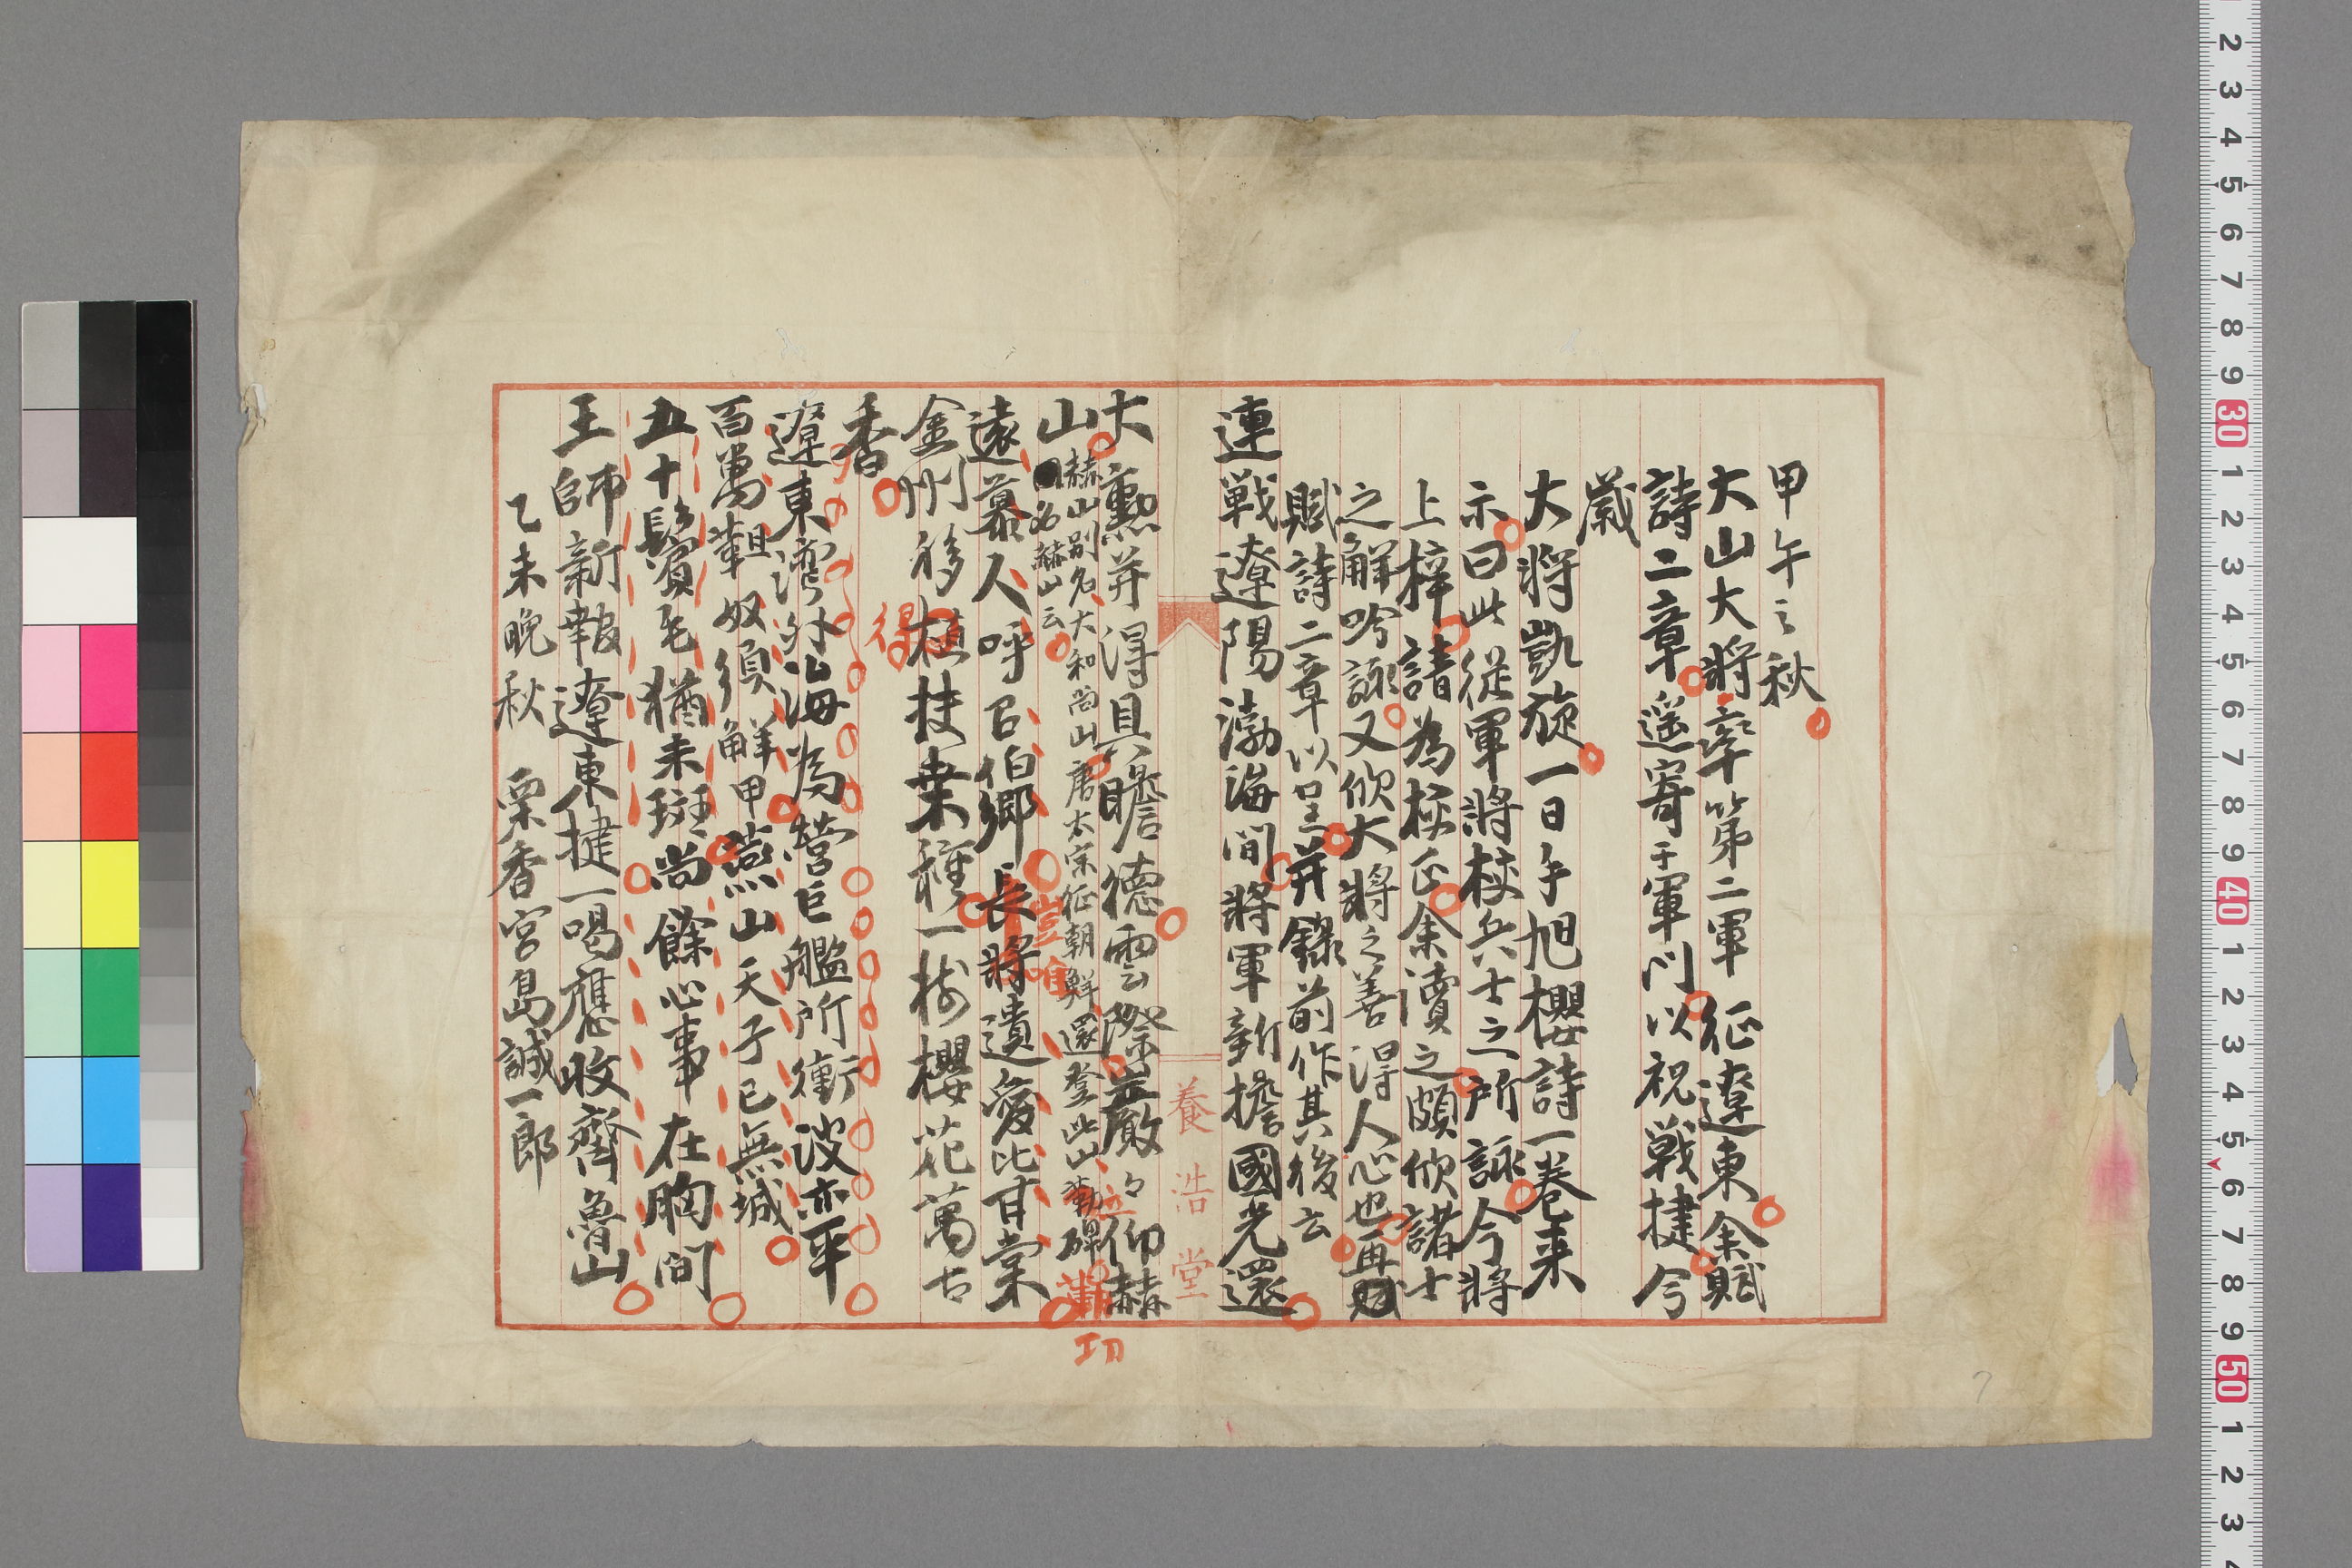 甲午之秋
大山大將率第二軍征遼東余賦
詩二章遥寄于軍門以祝戰捷今
歳
大將凱旋一日手旭櫻詩一巻来
示曰此從軍將校兵士之所詠今將
上梓請為校正余瀆之頗欣諸士
之觧吟詠又欣大將之善得人心也再
賦詩二章以呈并錄前作其後云
連戰遼陽渤海間將軍新擔國光還
養浩堂
大勲并得具瞻德雲際巌々仰赫
山
赫山別名大和尚山唐太宗征朝鮮還登此山勒碑
名赫山云
功
遠慕人呼召伯鄉長將遺愛比甘棠
豈唯
金州移植扶桒種一樹櫻花萬古
得
香
遼東湾外海為營巨艦所衝波亦平
百萬靼奴須觧甲燕山天子已無城
五十鬢毛猶未斑尚餘心事在胸间
王師新報遼東捷一喝應收齊魯山
乙未晚秋 栗香宮島誠一郎
2 3 4 5 6 7 8 9 30 1 2 3 4 5 6 7 8 9 40 1 2 3 4 5 6 7 8 9 50 1 2 3